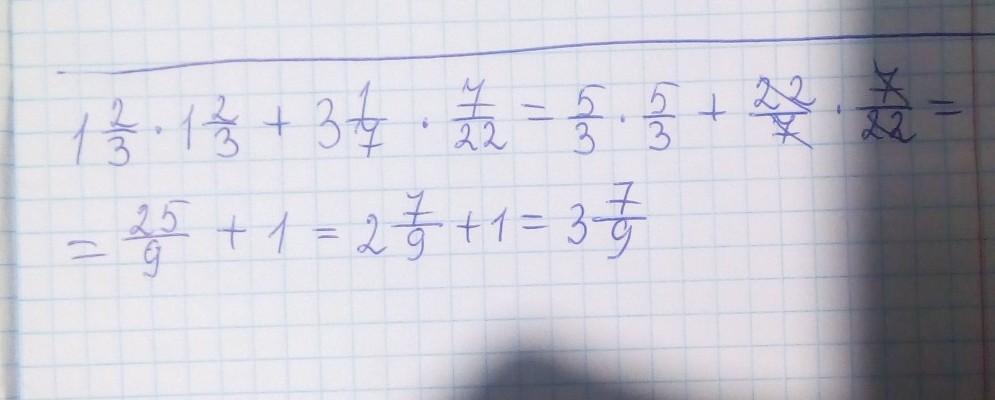 1 2/3 · 1 2/3 + 3 1/7 · 7/22 = 5/3 · 5/3 + 22/7 · 7/22 =
= 25/9 + 1 = 2 7/9 + 1 = 3 7/9